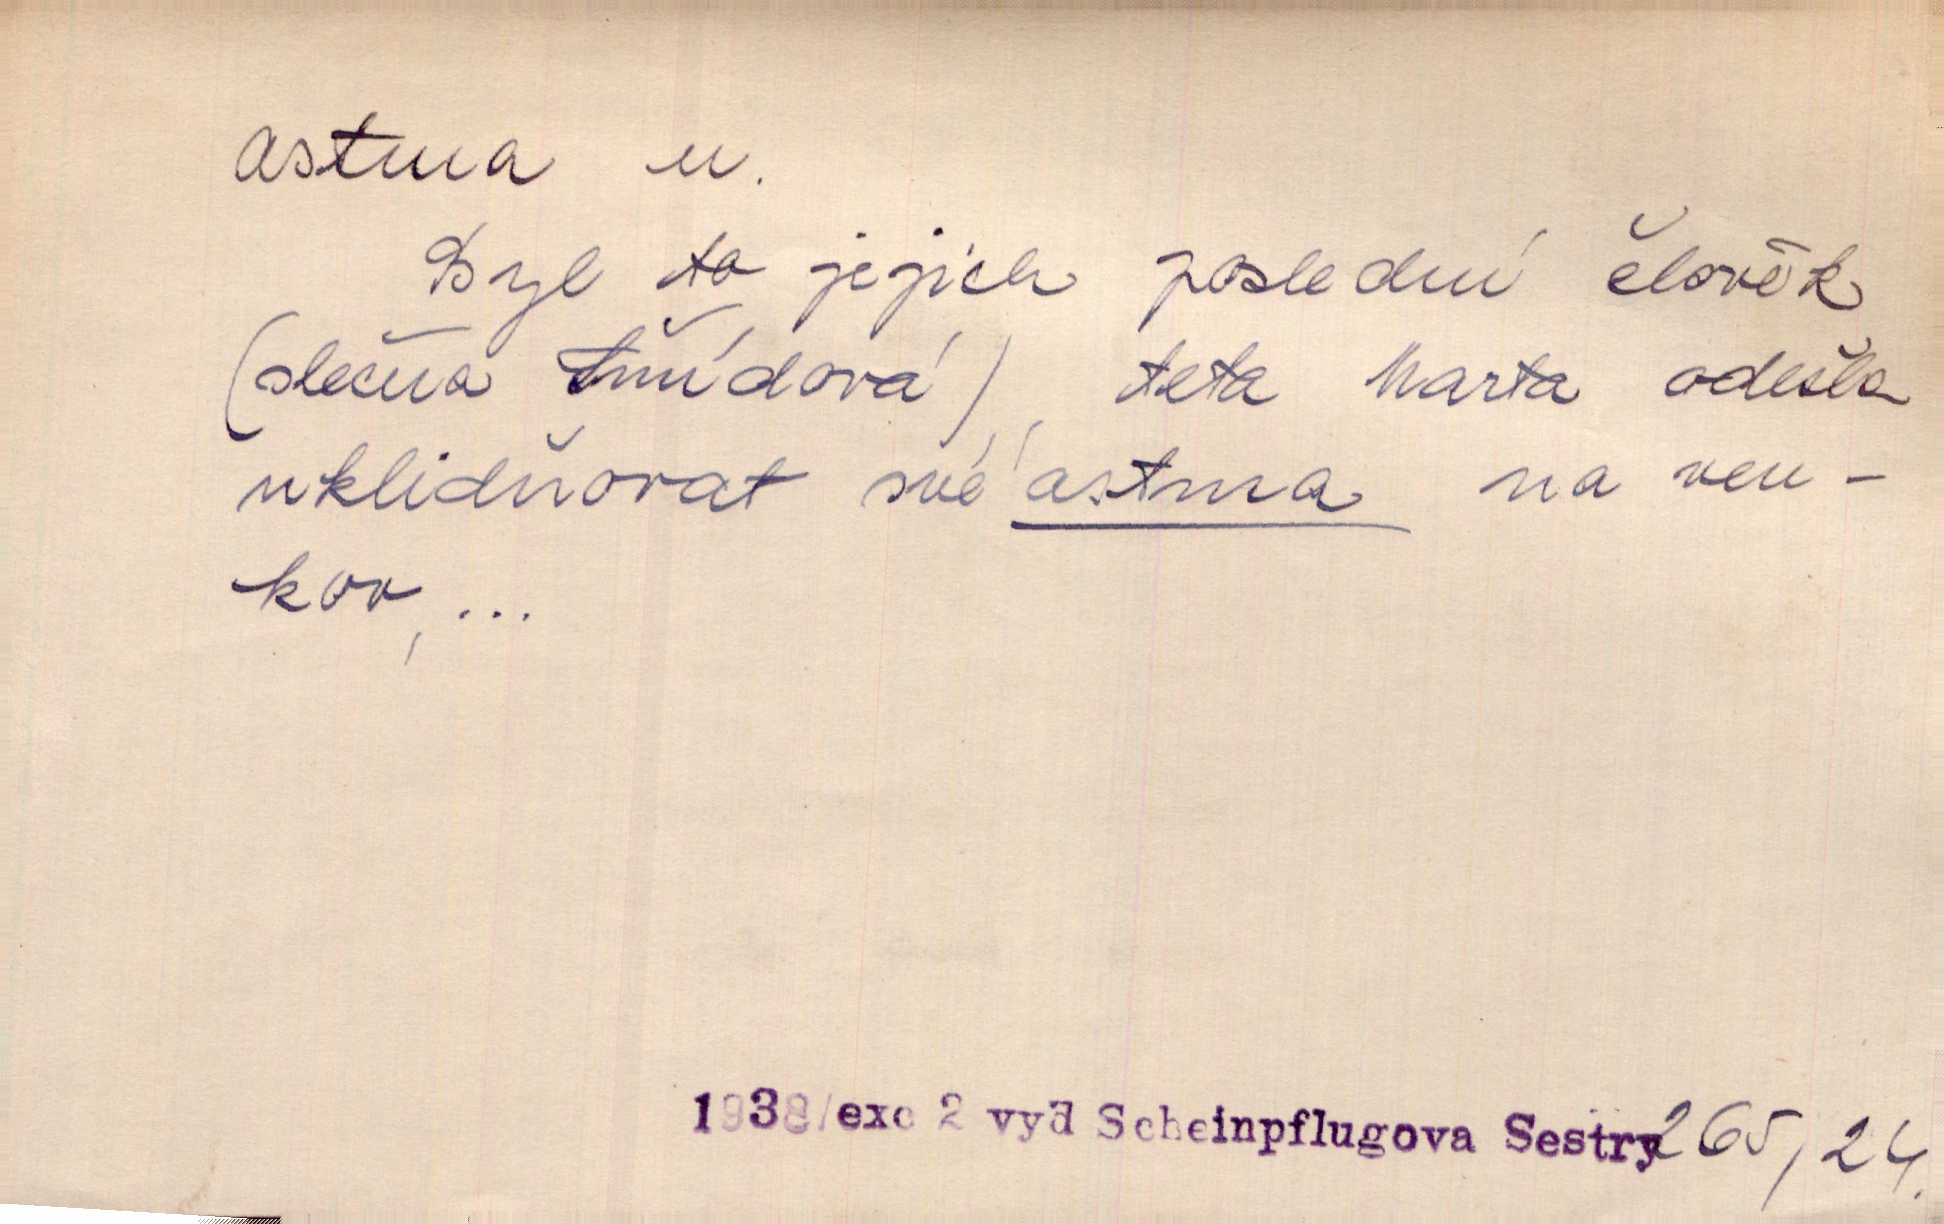 astma n.
Byl to jejich poslední člověk
(slečna Šmídová), teta Marta odešla
uklidňovat své astma na ven-
kov, ...
1938/exc 2 vyd Scheinpflugova Sestry 265, 24.